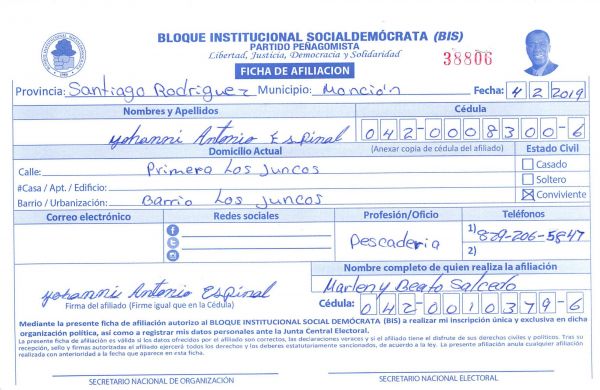 BLOQUE INSTITUCIONAL SOCIALDEMÓCRATA (BIS)
PARTIDO PEÑAGOMISTA
Libertad, Justicia, Democracia y Solidaridad
38806
FICHA DE AFILIACION
Provincia: Santiago Rodriguez Municipio: Monción Fecha: 4 2 2019
Nombres y Apellidos Cédula
Yohanni Antonio Espinal 042-0008300-6
Domicilio Actual (Anexar copia de cédula del afiliado) Estado Civil
Calle: Primera Los Juncos Casado
#Casa / Apt. / Edificio: Soltero
Barrio / Urbanización: Barrio Los Juncos Conviviente
Correo electrónico Redes sociales Profesión/Oficio Teléfonos
Pescaderia 1) 829-206-5847
2)
Nombre completo de quien realiza la afiliación
Yohanni Antonio Espinal Marleny Beato Salcedo
Firma del afiliado (Firme igual que en la Cédula) Cédula: 042-0010379-6
Mediante la presente ficha de afiliación autorizo al BLOQUE INSTITUCIONAL SOCIAL DEMÓCRATA (BIS) a realizar mi inscripción única y exclusiva en dicha
organización política, así como a registrar mis datos personales ante la Junta Central Electoral.
La presente ficha de afiliación es válida si los datos ofrecidos por el afiliado son correctos, las declaraciones veraces y si el afiliado tiene el disfrute de sus derechos civiles y políticos. Tras su
recepción, sello y firmas autorizadas el afiliado ejercerá todos los derechos y los deberes estatutariamente sancionados, de acuerdo a la ley. La presente afiliación anula cualquier afiliación
realizada con anterioridad a la fecha que aparece en esta ficha.
SECRETARIO NACIONAL DE ORGANIZACIÓN SECRETARIO NACIONAL ELECTORAL